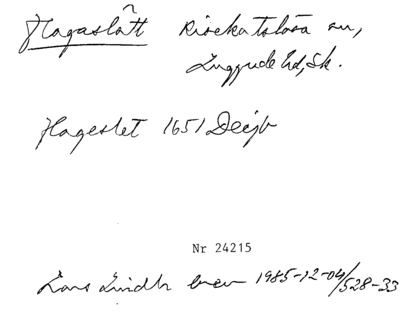 Hagaslätt Risekatslösa sn,
Luggude hd, Sk.
Hageslet 1651 Dejb
Nr 24215
Lars Lindh brev 1985-12-04/528-33